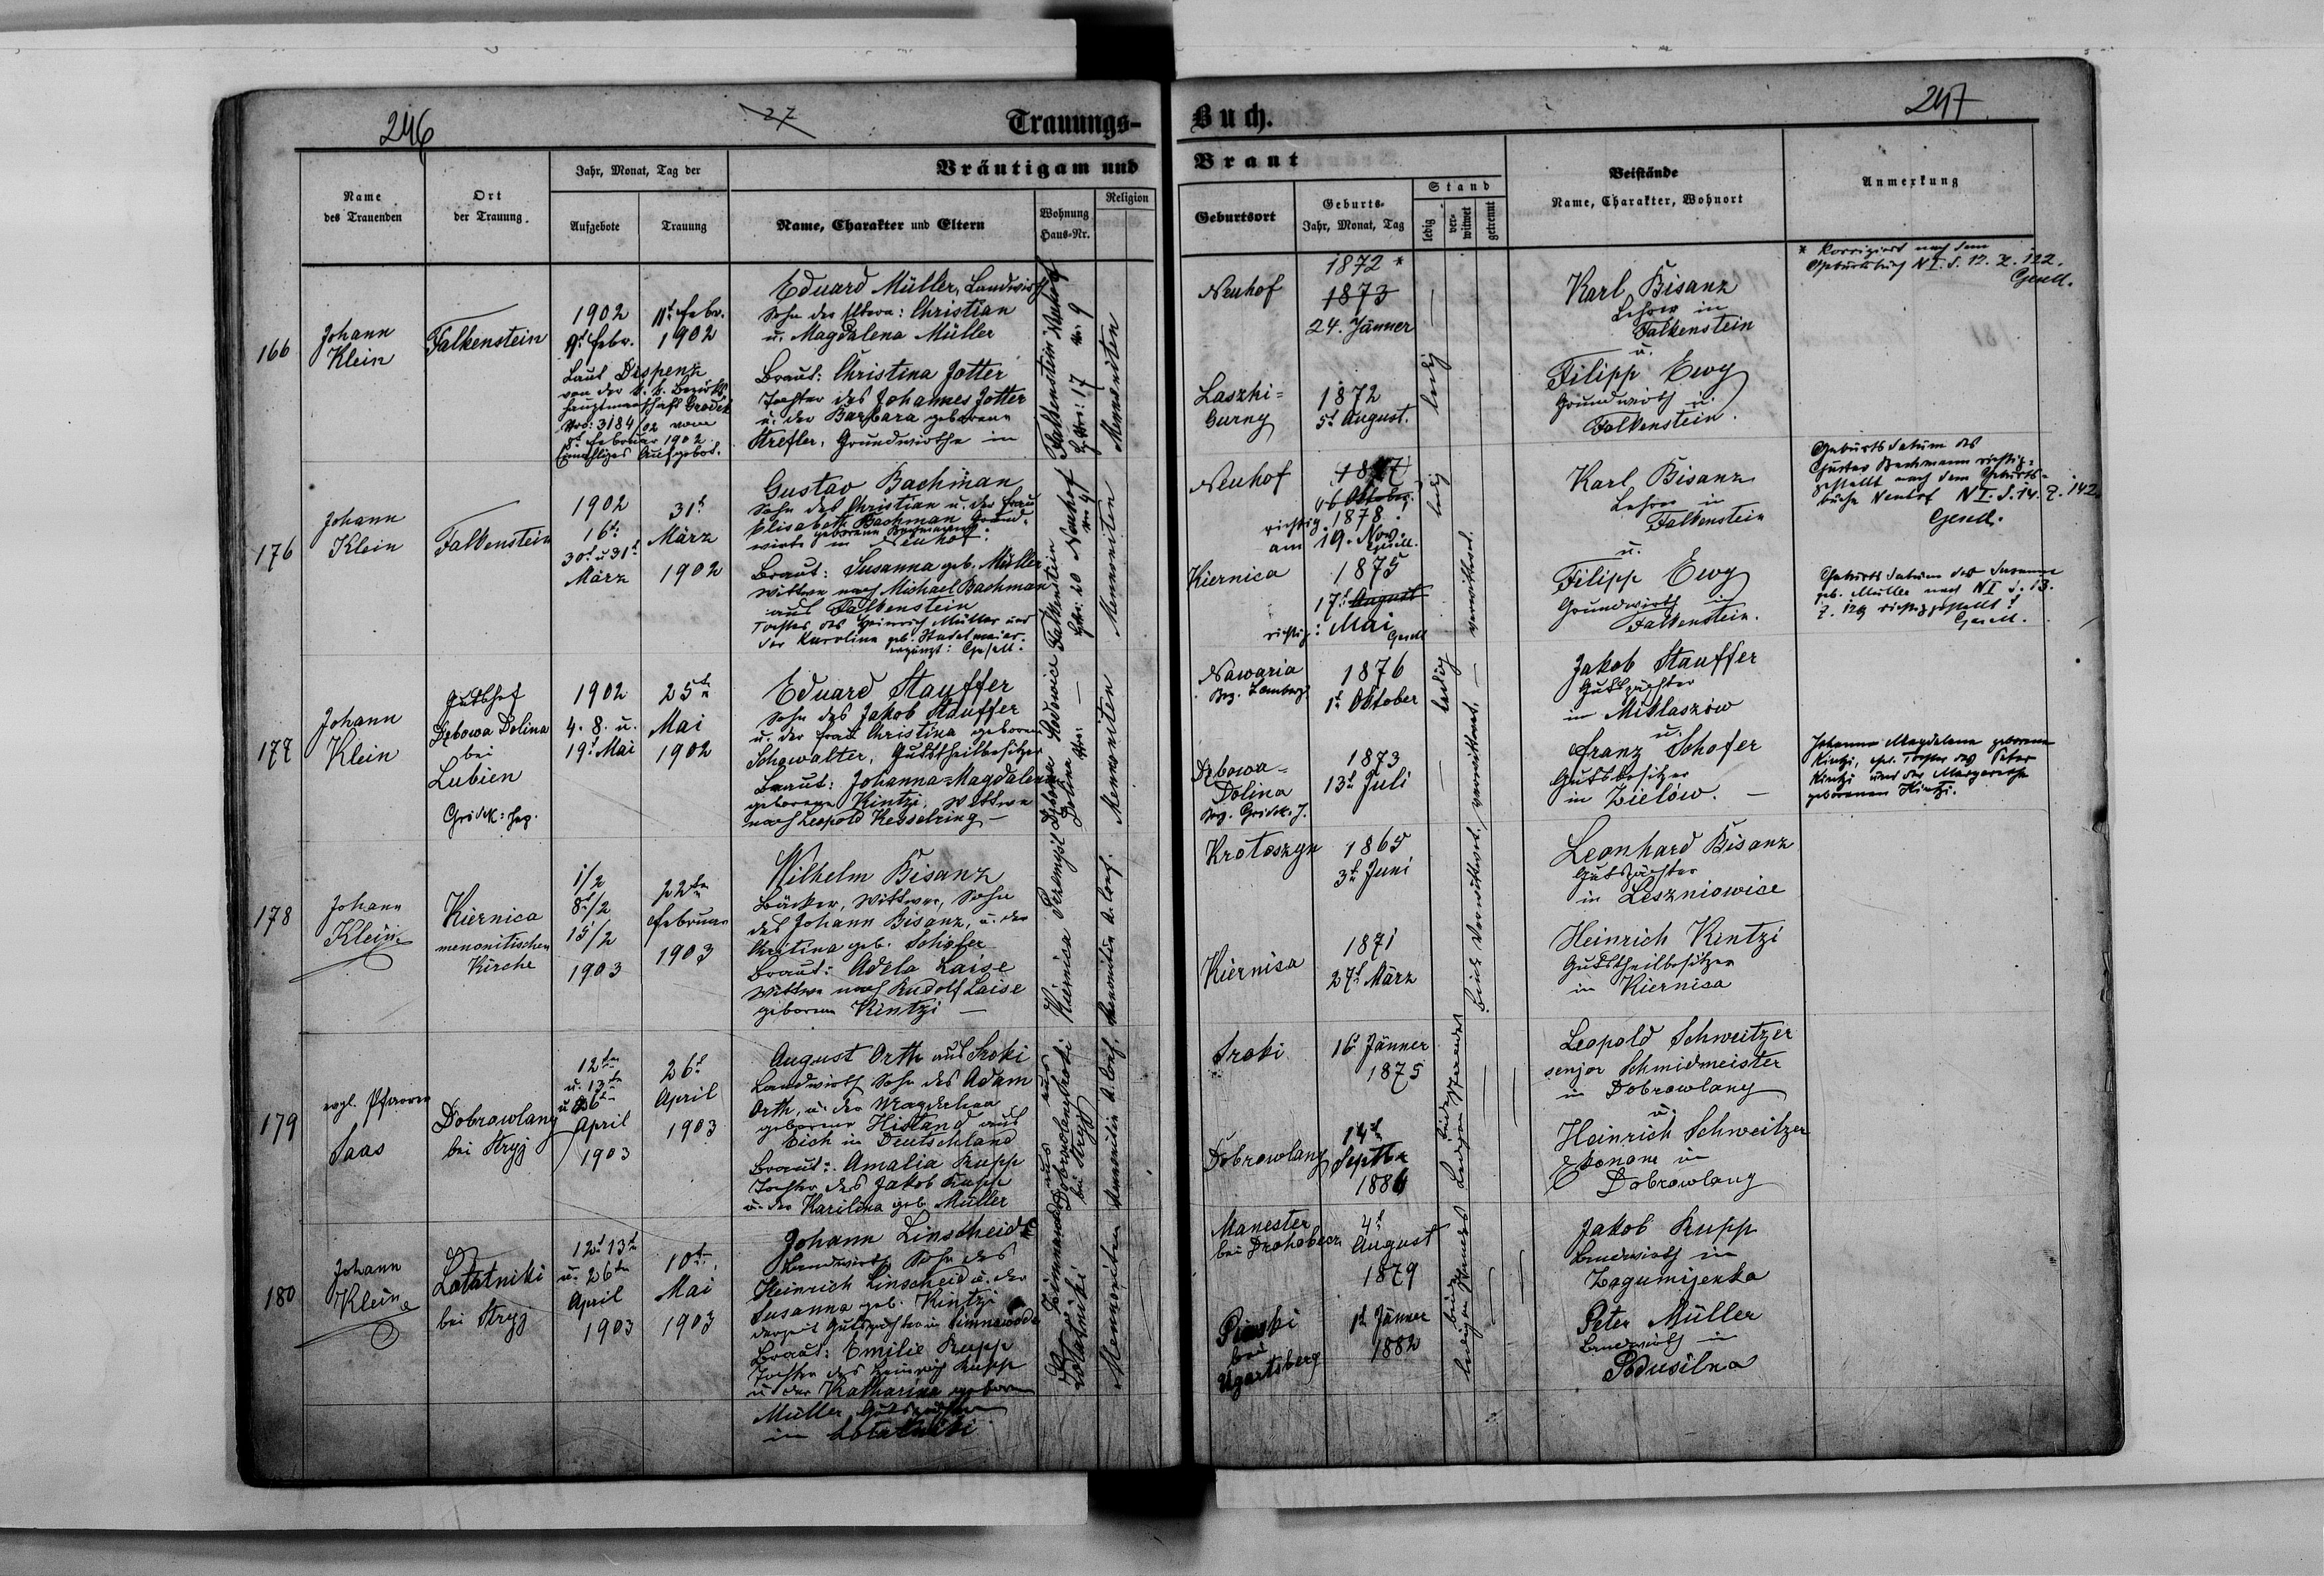 246
27
Trauungs-
Name
des Trauenden
Ort
der Trauung.
Jahr, Monat, Tag der
Aufgebote
Trauung
Bräutigam und
Name, Charakter und Eltern
Wohnung
Haus-Nr.
Religion
166
Johann
Klein
Falkenstein
1902
9t Febr.
Laut Dispenz
von der k. k. Bezirks-
hauptmannschaft Grodek
Nro: 3184/02 vom
8t Februar 1902.
Einmahliges Aufgebot.
11t Febr.
1902
Eduard Müller, Landwirth
Sohn der Eltern: Christian
u. Magdalena Müller
Braut: Christina Jotter
Tochter des Johannes Jotter
u. der Barbara geborene
Grundwirthe in
Neuhof
Nr. 9
Falkenstein
Hs Nr: 17
Mennoniten
176
Johann
Klein
Falkenstein
1902
16t
30t u 31t
März
31t
März
1902
Gustav Bachman
Sohn des Christian u. der Frau
Elisabeth Bachman Grund-
geborene Bachmann
wirte in Neuhof.
Braut: Susanna geb. Müller
Wittwe nach Michael Bachman
aus Falkenstein
Tochter des Heinrich Müller und
der Karolina geb. Stadelmaier.
ergänzt: Gesell.
Neuhof
Falkenstein
Hs Nr: 20
Mennoniten
177
Johann
Klein
Gutshof
Dębowa Dolina
bei
Lubien
Gródek: Jag.
1902
4. 8. u.
19t Mai
25tn
Mai
1902
Eduard Stauffer
Sohn des Jakob Stauffer
u. der Frau Christina geborene
Schowalter, Gutstheilbesitzer
Braut: Johanna-Magdalena
geborene Kintzi, Wittwe
nach Leopold Kesselring —
Hodowice
Dębowa
Dolina Nro: —
Mennoniten
178
Johann
Klein
Kiernica
menonitischen
Kirche
1/2
8t/2
15/2
1903
22tn
Februar
1903
Wilhelm Bisanz
Bäcker, Wittwer, Sohn
des Johann Bisanz, u. der
Christina geb. Schöfer
Braut: Adela Laise
Wittwe nach Rudolf Laise
geborene Kintzi —
Przemyśl
Kiernica
179
evgl. Pfarrer
Saas
Dobrowlany
bei Stryj
12tn
u. 13tn
u 26tn
April
1903
26t
April
1903
August Orth aus Sroki
Landwirth Sohn des Adam
Orth, u. der Magdalena
geborene Histand aus
Eich in Deutschland
Braut: Amalia Rupp
Tochter des Jakob Rupp
u. der Karilina geb. Müller
aus
Sroki
aus
Dobrowlany
bei Stryj
180
Johann
Klein
Lotatniki
bei Stryj
12t 13t
u. 26tn
April
1903
10t
Mai
1903
Johann Linscheid
Landwirth Sohn des
Heinrich Linscheid u. der
Susanna geb. Kintzi
derzeit Gutspächter in Zimnawoda
Braut: Emilie Rupp
Tochter des Heinrich Rupp
u der Katharine geborene
Müller, Gutspächter
in Lotatniki
Zimnawoda
Lotatniki
Mennoniten
247
Buch.
Braut
Geburtsort
Geburts-
Jahr, Monat, Tag
Stand
ledig
ver-
witwet
getrennt
Beistände
Name, Charakter, Wohnort
Anmerkung
Neuhof
1872 *
1873
24. Jänner
Laszki-
Gurny
1872
5t August.
ledig
Karl Bisanz
Lehrer in
Falkenstein
u.
Filipp Ewy
Grundwirth in
Falkenstein.
* Korrigiert nach dem
Geburtsbuch N I. S. 12. Z. 122.
Gesell.
Neuhof
Oktober
richtig. 1878.
am 19. Nov.
Gesell.
Kiernica
1875
17t August
richtig: Mai
Gesell
ledig
verwitwet.
Karl Bisanz
Lehrer in
Falkenstein
u.
Filipp Ewy
Grundwirth in
Falkenstein.
Geburtsdatum des
Gustav Bachmann richtig-
gestellt nach dem Geburts-
buche Neuhof N I. S. 14. Z. 142.
Gesell.
Geburtsdatum der Susanne
geb. Müller nach N I S. 13.
Z. 129 richtiggestellt!
Gesell.
Nawaria
Bez. Lemberg
1876
1t Oktober
Dębowa-
Dolina
Bez. Gródek. J.
1873
13tn Juli
ledig
verwittwet. —
Jakob Stauffer
Gutspächter
in Miklaszów
u.
Franz Schofer
Gutsbesitzer
in Zielów. —
Johanna Magdalena geborene
Kintzi, ehel. Tochter des Peter
Kintzi und der Margarethe
geborenen Kintzi.
Krotoszyn
1865
3tn Juni
Kiernica
1871
27t März
Beide verwittwet.
Leonhard Bisanz
Gutspächter
in Leszniowice
Heinrich Kintzi
Gutstheilbesitzer
in Kiernica
Sroki
16t Jänner
1875
Dobrowlany
14t
Septbr
1886
beide
Ledigen Standes
Leopold Schweitzer
senjor Schmidmeister
in Dobrowlany
u.
Heinrich Schweitzer
Ekonom in
Dobrowlany
Manester
bei Drohobecz
4t
August
1879
bei
Ugartsberg
1t Jänner
1882
beide
ledigen Standes
Jakob Rupp
Landwirth in
Peter Müller
Landwirth in
Podusilna